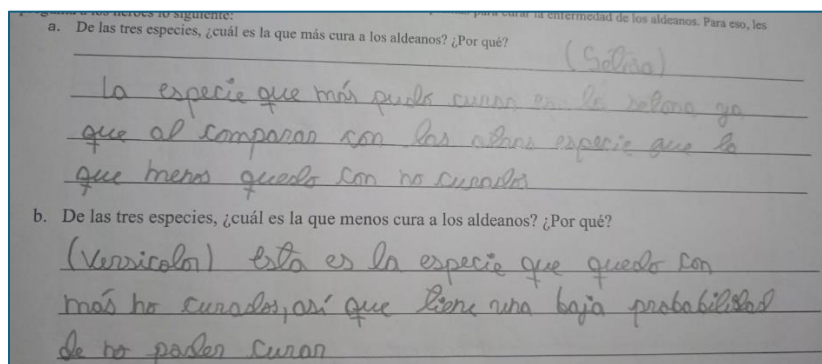 pregunta a los héroes lo siguiente: para curar la enfermedad de los aldeanos. Para eso, les
a. De las tres especies, ¿cuál es la que más cura a los aldeanos? ¿Por qué?
(Sólina)
la especie que más pudo curar es la selona ya
que al comparar con las otras especie que lo
que menos quedo con no curados
b. De las tres especies, ¿cuál es la que menos cura a los aldeanos? ¿Por qué?
(Versicolor) esta es la especie que quedo con
más no curados, así que tiene una baja probabilidad
de no poder curar